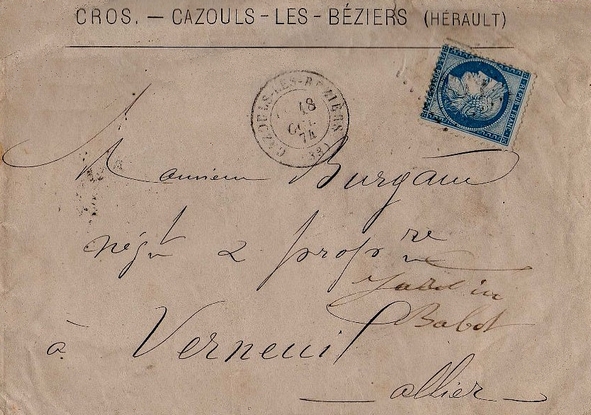 CROS. — CAZOULS-LES-BÉZIERS (HÉRAULT)
CAZOULS-LES-BÉZIERS
18
OCT.
74
Monsieur Burgaud
négt & propre
Jardin
Babot
à Verneuil
allier